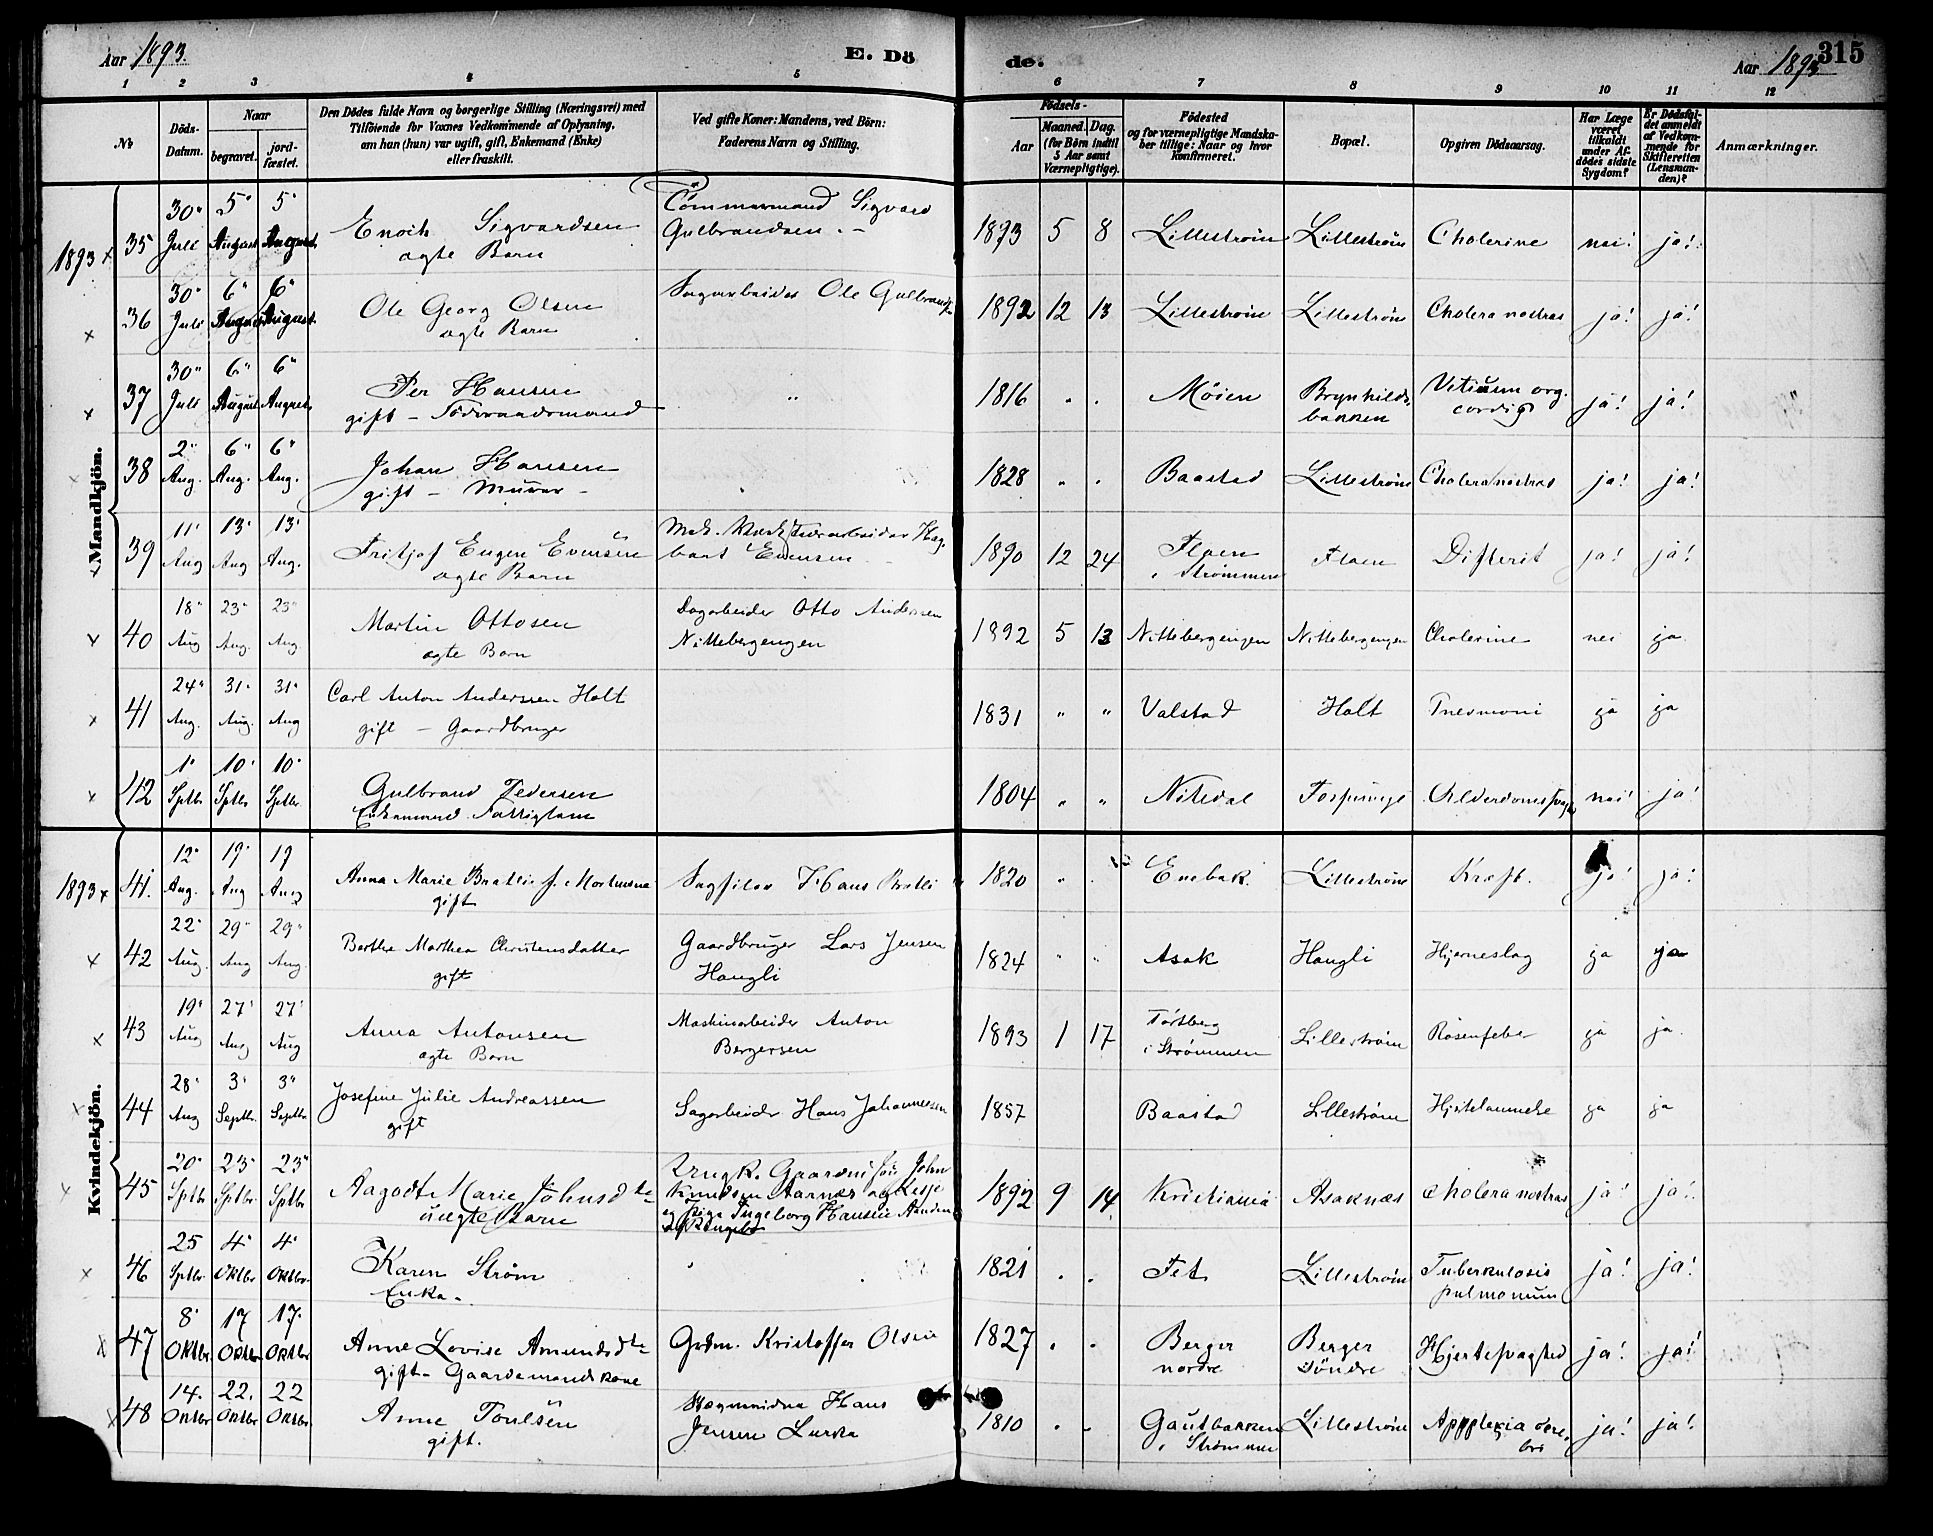 Aar 1893.
E. Dö
de.
Aar 1893
315
1 2 3 4 5 6 7 8 9 10 11 12
No
Döds-Datum.
Naar
begravet.
jord-fæstet.
Den Dödes fulde Navn og borgerlige Stilling (Næringsvei) med
Tilföiende for Voxnes Vedkommende af Oplysning,
om han (hun) var ugift, gift, Enkemand (Enke)
eller fraskilt.
Ved gifte Koner: Mandens, ved Börn:
Faderens Navn og Stilling.
Födsels-
Aar
Maaned. Dag.
(for Börn indtil
5 Aar samt
Værnepligtige).
Födested
og for værnepligtige Mandska-
ber tillige: Naar og hvor
Konfirmeret.
Bopæl.
Opgiven Dödsaarsag.
Har Læge
været
tilkaldt
under Af-
dödes sidste
Sygdom?
Er Dödsfal-
det anmeldt
af Vedkom-
mende for
Skifteretten
(Lensman-
den)?
Anmærkninger.
Mandkjön.
1893 x 35 30. Juli 5. August 5. August. Enoch Sigvardsen ægte Barn Tømmermand Sigvard Gulbrandsen. 1893 5 8 Lillestrøm Lillestrøm Cholerine nei! ja!
x 36 30. Juli 6. August 6. August. Ole Georg Olsen ægte Barn Sagarbeider Ole Gulbrands. 1892 12 13 Lillestrøm Lillestrøm Cholera nostras ja! ja!
x 37 30. Juli 6. August 6. August Per Hansen gift - Føderaadsmand " 1816 Møien Brynhilds-bakken Vitium org. cordis ja! ja!
x 38 2. Aug. 6. Aug. 6. Aug. Johan Hansen gift - Murer - 1828 Baastad Lillestrøm Cholera nostras ja! ja!
x 39 11. Aug 13. Aug 13. Aug. Fritjof Eugen Evensen ægte Barn Mek. Værkstedarbeider Hag-bart Evensen 1890 12 24 Flaen i Strømmen Flaen Difterit ja! ja!
x 40 18. Aug 23. Aug. 23. Aug Martin Ottosen ægte Barn Dagarbeider Otto Andersen Nittebergengen 1892 5 13 Nittebergengen Nittebergengen Cholerine nei ja.
x 41 24. Aug. 31. Aug. 31. Aug Carl Anton Anderssen Holt gift - Gaardbruger 1831 " " Valstad Holt Pnevmoni ja ja
x 42 1. Sptb. 10. Sptb. 10. Sptbr. Gulbrand Pedersen Enkemand Fattiglem 1804 " " Nitedal Alderdomssvagh. nei! ja!
Kvindekjön.
1893 x 41. 12. Aug. 19. Aug 19 Aug Anna Marie Bratlie f. Mortensen gift Sagfiler Hans Bratli 1820 Enebak. Lillestrøm Kræft. ja! ja!
x 42 22. Aug. 29. Aug 29. Aug. Berthe Marthea Christensdatter gift Gaardbruger Lars Jensen Haugli 1824 " " Asak Haugli Hjerneslag ja ja
x 43 19. Aug 27. Aug 27. Aug Anna Antonsen ægte Barn Maskinarbeider Anton Bergersen 1893 1 17 i Strømmen Lillestrøm Rosenfeber ja ja.
x 44 28. Aug 3. Septb. 3. Septbr Josefine Julie Andreassen gift Sagarbeider Hans Johannessen 1857 Baastad Lillestrøm Hjertelammelse ja ja
x 45 20. Sptbr 23. Sptbr. 23. Sptbr Aagodt Marie Johnsdte uægte Barn John Knudsen Aarnæs Pige Ingeborg Hansen 1892 9 14 Kristiania Asaknæs Cholera nostras ja! ja!
x 46 25 Sptbr. 4. Oktbr 4. Oktbr. Karen Strøm Enke. 1821 Fet Lillestrøm Tuberkulosis pulmonum ja! ja!
x 47 8. Oktbr 17 Oktbr. 17. Oktbr Anne Lovise Amundsdtr gift - Gaardmandskone Grdm. Kristoffer Olsen 1827 Berger nordre Berger søndre Hjertesvaghed ja! ja!
x 48 14. Oktbr 22. Oktbr 22 Oktbr. Anne Poulsen gift. Hans Jensen 1810 Gautbakken i Strømmen Lillestrøm Apoplexia cere-bri ja! ja!